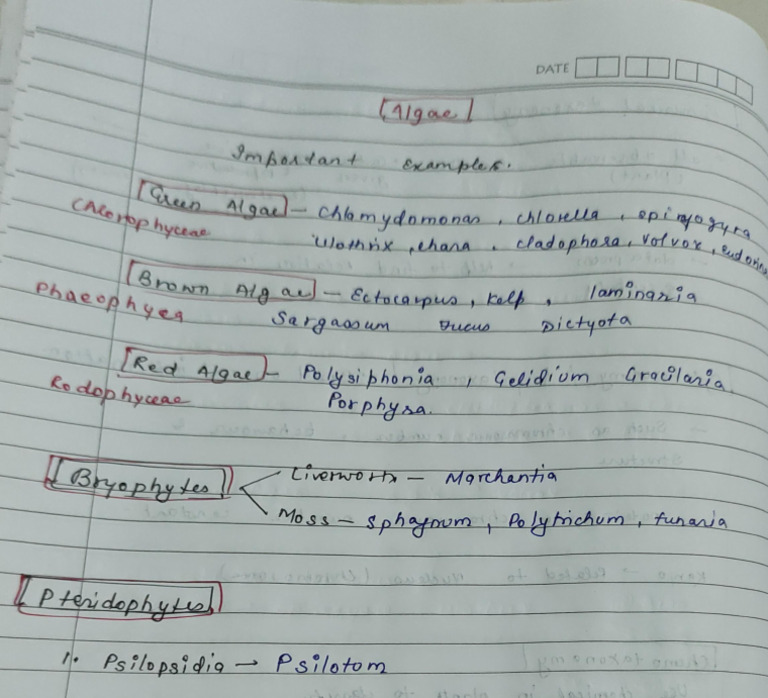 DATE
Algae
Important Examples.
Green Algae - Chlamydomonas, chlorella, spirogyra
Chlorophyceae
Ulothrix, chara, cladophora, Volvox, eudorina
Brown Algae - Ectocarpus, Kelp, laminaria
Phaeophyea
Sargassum Fucus Dictyota
Red Algae - Polysiphonia, Gelidium Gracilaria
Rodophyceae
Porphyra.
Bryophytes
Liverworts - Marchantia
Moss - Sphagnum, Polytrichum, funaria
Pteridophytes
1. Psilopsidia → Psilotom